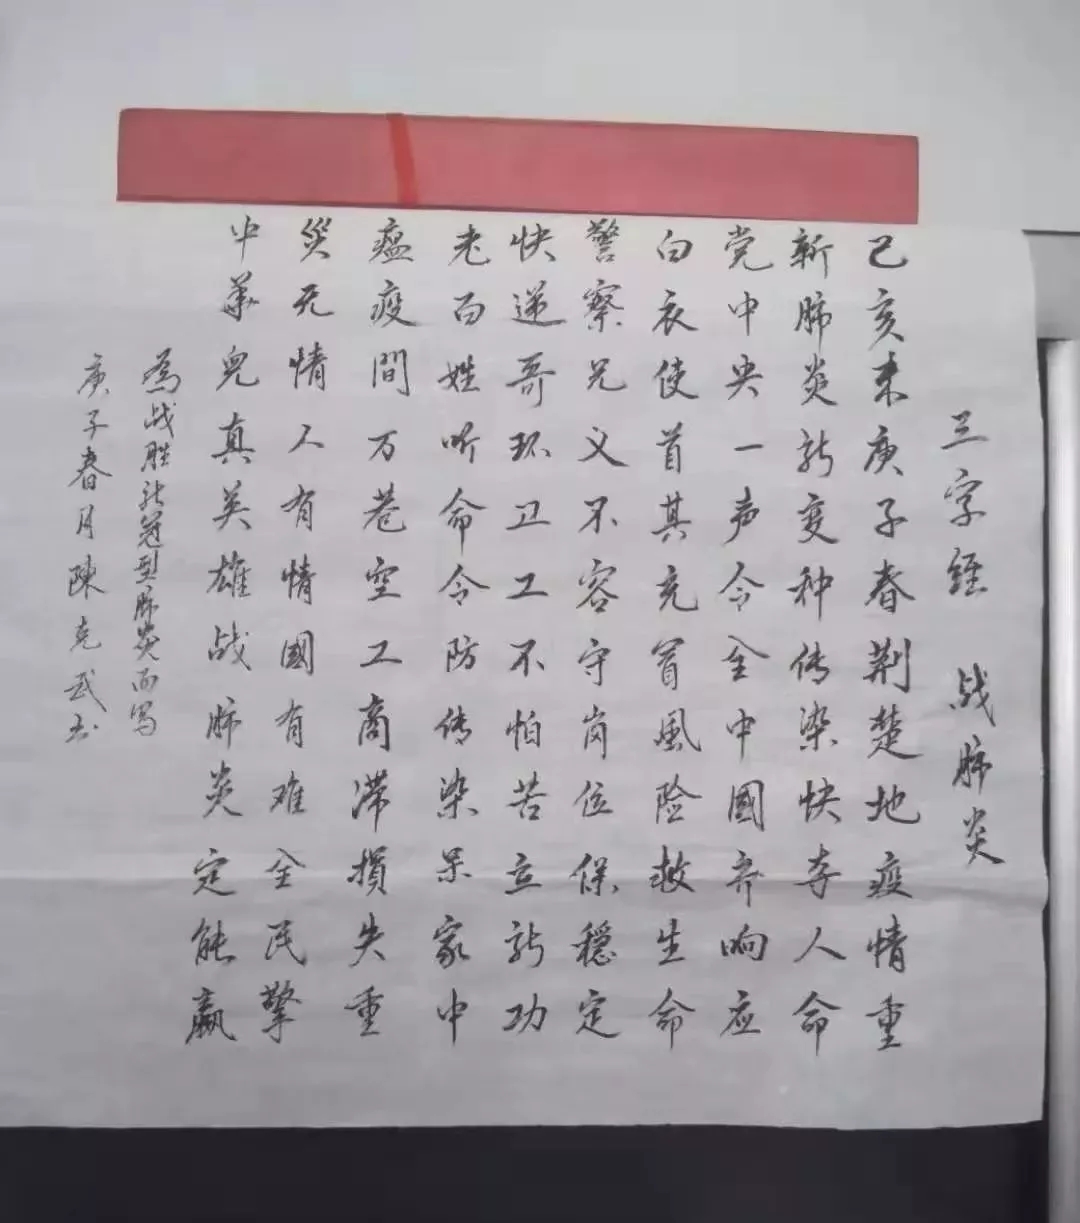 三字经 战肺炎
己亥末庚子春荆楚地疫情重
新肺炎新变种传染快夺人命
党中央一声令全中國齐响应
白衣使首其充冒風险救生命
警察兄义不容守岗位保穏定
快递哥环卫工不怕苦立新功
老百姓听命令防传染呆家中
瘟疫間万巷空工商滞損失重
災无情人有情國有难全民擎
中華兒真英雄战肺炎定能赢
為战胜新冠型肺炎而写
庚子春月陳克武书